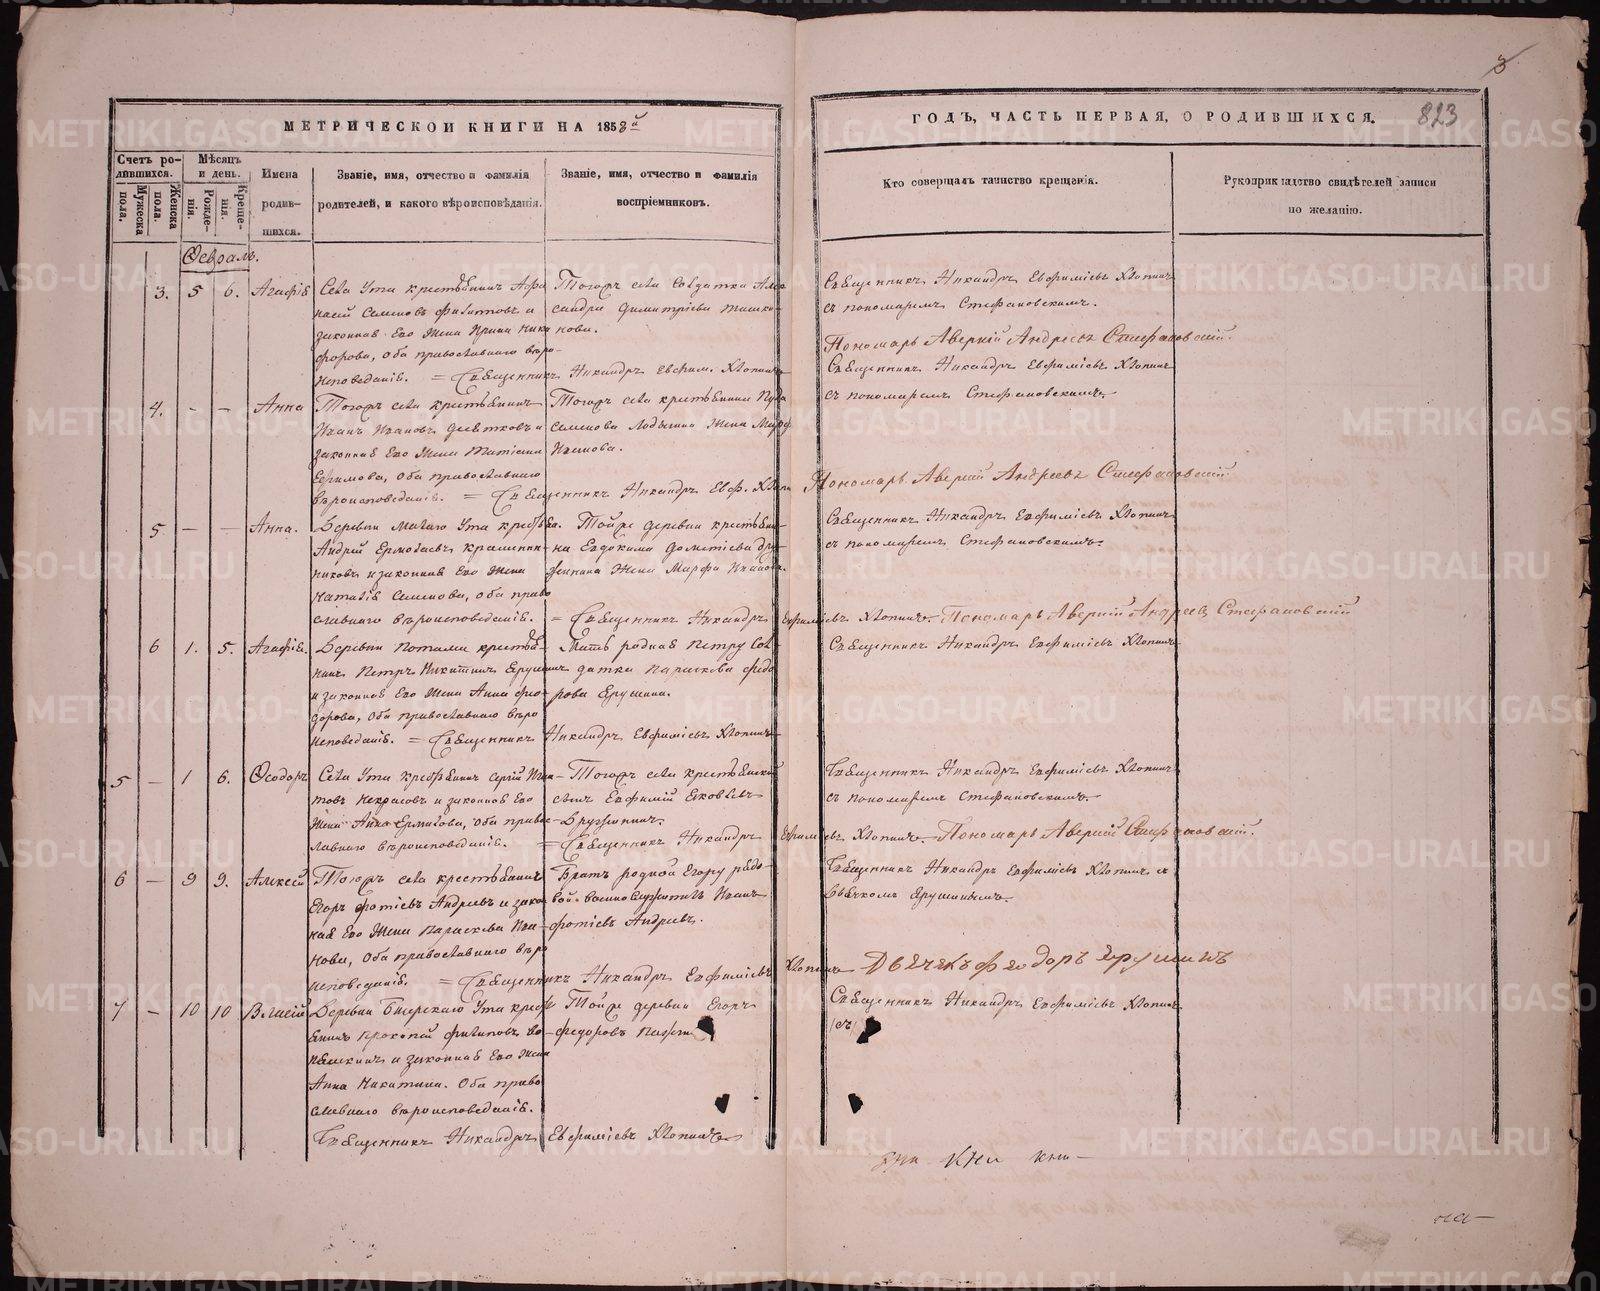 МЕТРИЧЕСКОЙ КНИГИ НА 1858й
ГОДЪ, ЧАСТЬ ПЕРВАЯ, О РОДИВШИХСЯ.
823
Счетъ родившихся.
Мужеска пола.
Женска пола.
Мѣсяцъ и день.
Рожденія.
Крещенія.
Имена родившихся.
Званіе, имя, отчество и фамилія
родителей, и какого вѣроисповѣданія.
Званіе, имя, отчество и фамилія
воспріемниковъ.
Кто совершалъ таинство крещенія.
Рукоприкладство свидѣтелей записи
по желанію.
Февраль.
3. 5 6. Агафія
Села Ута крестьянинъ Афа
насій Семеновъ Филиповъ и
законная Его Жена Ирина Ники
форова, Оба православнаго вѣро-
исповеданія. = Священникъ Никандръ Евфим. Хлопинъ
Тогожъ села Солдатка Алек
сандра Димитріева
Священникъ Никандръ Евфиміевъ Хлопинъ
съ пономаремъ Стефановскимъ.
Пономарь Аверкій Андреевъ Стефановскій.
4. - - Анна
Тогожъ села крестьянинъ
Иванъ Ивановъ Девятковъ и
законная Его Жена Татіана
Ефимова, Оба православнаго
вѣроисповеданія. = Священникъ Никандръ Евф. Хлопи
Тогожъ села крестьянина
Семенова Жена
Иванова.
Священникъ Никандръ Евфиміевъ Хлопинъ
съ пономаремъ Стефановскимъ.
Пономарь Аверкій Андреевъ Стефановскій
5 - - Анна.
Деревни Малаго Ута крестьян.
Андрей Ермолаевъ
и законная Его Жена
Наталія Семенова, Оба право
славнаго вѣроисповеданія. = Священникъ Никандръ Евфиміевъ Хлопинъ.
Тойже деревни крестьяни-
на Евдокима Дометіева
Жена Марфа Иванова.
Священникъ Никандръ Евфиміевъ Хлопинъ
съ пономаремъ Стефановскимъ.
Пономарь Аверкій Андреевъ Стефановскій
6 1. 5. Агафія.
Деревни Потами крестья-
нинъ Петръ Никитинъ Ярушинъ
и законная Его Жена Анна Фео-
дорова, Оба православнаго вѣро
исповеданія. = Священникъ Никандръ Евфиміевъ Хлопинъ
Мать родная Петру Сол-
датка Параскева Федо
рова Ярушина.
Священникъ Никандръ Евфиміевъ Хлопинъ
5 - 1 6. Феодоръ
Села Ута крестьянинъ Сергій
Некрасовъ и законная Его
Жена Анна Ермилова, Оба право
славнаго вѣроисповеданія. = Священникъ Никандръ Евфиміевъ Хлопинъ.
Тогожъ села крестьянскій
сынъ Евфимій Яковлевъ
Дружининъ.
Священникъ Никандръ Евфиміевъ Хлопинъ
съ пономаремъ Стефановскимъ.
Пономарь Аверкій Стефановскій.
6 - 9 9. Алексей
Тогожъ села крестьянинъ
Егоръ Фотіевъ Андреевъ и закон
ная Его Жена Параскева Ива
нова, Оба православнаго вѣро
исповеданія. = Священникъ Никандръ Евфиміевъ Хлопинъ
Братъ родной Егору рядо-
вой военнослужитель Иванъ
Фотіевъ Андреевъ.
Священникъ Никандръ Евфиміевъ Хлопинъ с
Дьячкомъ Ярушинымъ.
Дьячекъ Феодоръ Ярушинъ
7 - 10 10 Власій
Деревни Бисерскаго Ута крест
янинъ Прокопій Филиповъ
и законная Его Жена
Анна Никитина. Оба право
славнаго вѣроисповеданія.
Священникъ Никандръ Евфиміевъ Хлопинъ
Тойже деревни Егоръ
Федоровъ
Священникъ Никандръ Евфиміевъ Хлопинъ
кни